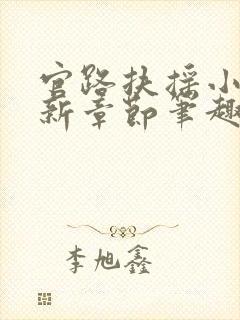 官路扶摇小
新章节笔趣
李旭鑫